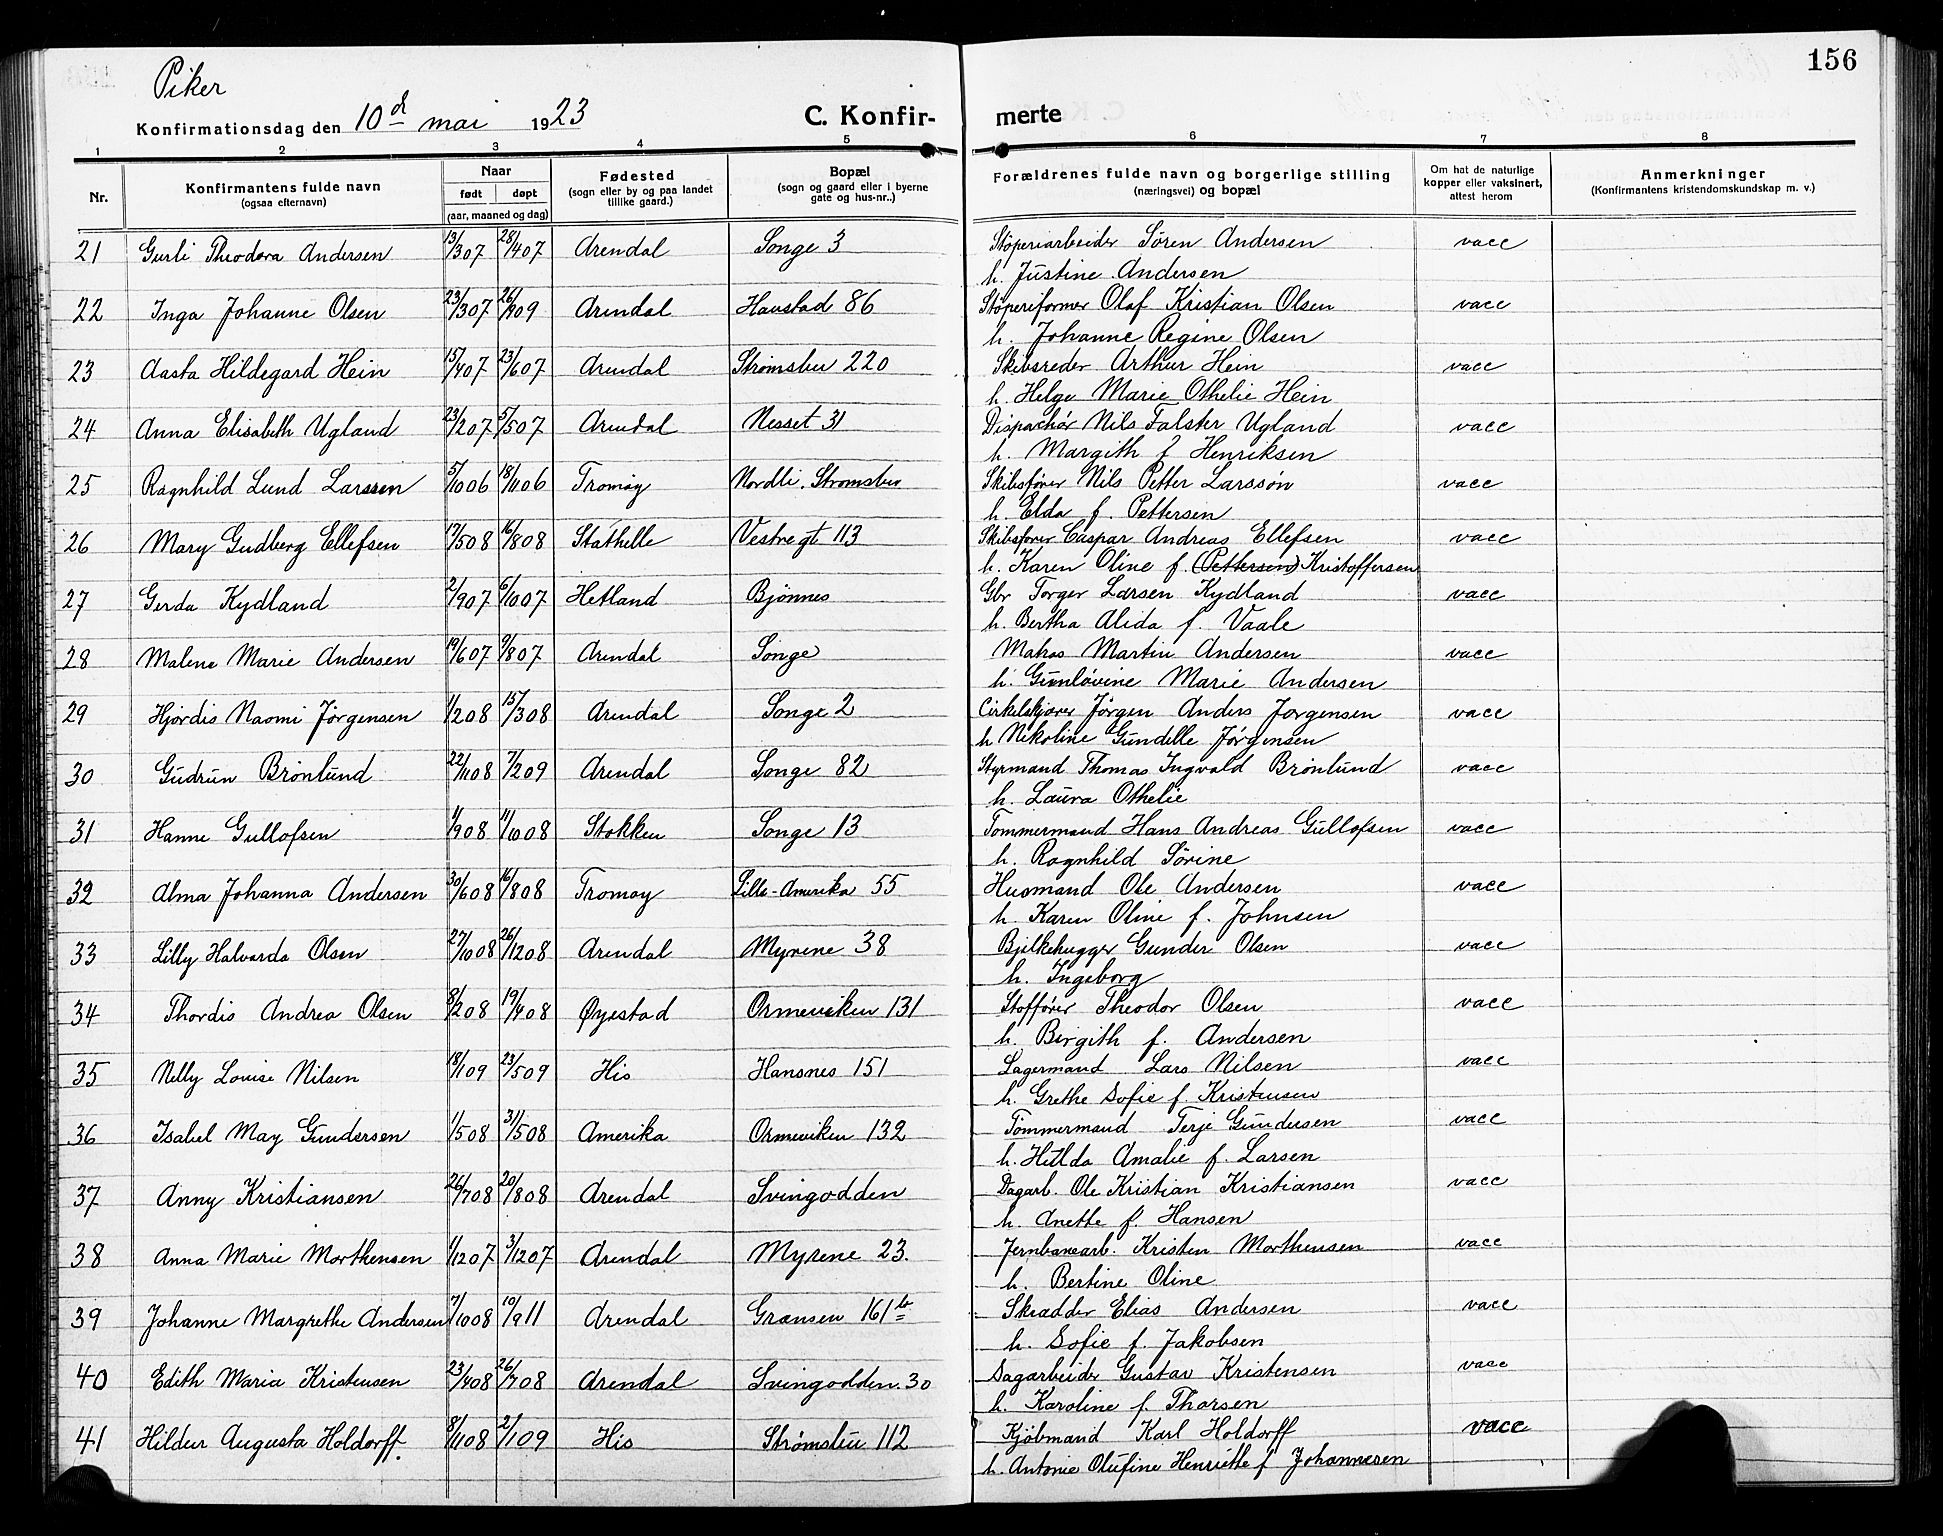 156
Piker
Konfirmationsdag den 10d mai 1923
C. Konfir- merte
1 2 3 4 5 6 7 8
Nr.
Konfirmantens fulde navn
(ogsaa efternavn)
Naar
født døpt
(aar, maaned og dag)
Fødested
(sogn eller by og paa landet
tillike gaard.)
Bopæl
(sogn og gaard eller i byerne
gate og hus-nr..)
Forældrenes fulde navn og borgerlige stilling
(næringsvei) og bopæl
Om hat de naturlige
kopper eller vaksinert,
attest herom
Anmerkninger
(Konfirmantens kristendomskundskap m. v.)
21 Gurli Theodora Andersen 13/307 28/407 Arendal Songe 3 Støperiarbeider Søren Andersen vacc
h. Justine Andersen
22 Inga Johanne Olsen 23/307 26/909 Arendal Havstad 86 Støperiformer Olaf Kristian Olsen vacc
h. Johanne Regine Olsen
23 Aasta Hildegard Hein 15/407 23/607 Arendal Strømsbu 220 Skibsreder Arthur Hein vacc
h. Helge Marie Othelie Hein
24 Anna Elisabeth Ugland 23/207 5/507 Arendal Nesset 31 Dispachør Nils Falster Ugland vacc
h. Margith f Henriksen
25 Ragnhild Lund Larssen 5/1006 18/1106 Tromøy Nordli, Strømsbu Skibsfører Nils Petter Larssøn vacc
h. Elda f. Pettersen
26 Mary Gudberg Ellefsen 17/508 16/808 Stathelle Vestregt 113 Skibsfører Caspar Andreas Ellefsen vacc
h. Karen Oline f. (Pettersen) Kristoffersen
27 Gerda Kydland 2/907 6/1007 Hetland Bjønnes Gbr Torger Larsen Kydland vacc
h. Bertha Alida f. Vaale
28 Malene Marie Andersen 19/607 9/807 Arendal Songe Matros Martin Andersen vacc
h. Gunløvine Marie Andersen
29 Hjørdis Naomi Jørgensen 1/208 15/308 Arendal Songe 2 Cirkelskjærer Jørgen Anders Jørgensen vacc
h Nikoline Gundelle Jørgensen
30 Gudrun Brønlund 22/1108 7/209 Arendal Songe 82 Styrmand Thomas Ingvald Brønlund vacc
h. Laura Othelie
31 Hanne Gullofsen 1/908 11/1008 Stokken Songe 13 Tømmermand Hans Andreas Gullofsen vacc
h. Ragnhild Sørine
32 Alma Johanna Andersen 30/608 16/808 Tromøy Lille-Amerika 55 Husmand Ole Andersen vacc
h. Karen Oline f. Johnsen
33 Lilly Halvarda Olsen 27/1008 26/1208 Arendal Myrene 38 Bjelkehugger Gunder Olsen vacc
h. Ingeborg
34 Thordis Andrea Olsen 8/208 19/408 Øyestad Ormeviken 131 Theodor Olsen vacc
h. Birgith f. Andersen
35 Nelly Louise Nilsen 18/109 23/509 His Hansnes 151 Lagermand Lars Nilsen vacc
h. Grethe Sofie f. Kristensen
36 Isabel May Gundersen 1/508 31/508 Amerika Ormeviken 132 Tømmermand Terje Gundersen vacc
h. Hilda Amalie f. Larsen
37 Anny Kristiansen 26/708 20/808 Arendal Svingodden Dagarb. Ole Kristian Kristiansen vacc
h. Anette f. Hansen
38 Anna Marie Morthensen 1/1207 3/1207 Arendal Myrene 23. Jernbanearb. Kristen Morthensen vacc
h. Bertine Oline
39 Johanne Margrethe Andersen 7/1008 10/911 Arendal Grænsen 161b Skrædder Elias Andersen vacc
h. Sofie f. Jakobsen
40 Edith Maria Kristensen 23/408 26/708 Arendal Svingodden 30 Sagarbeider Gustav Kristensen vacc
h. Karoline f. Thorsen
41 Hildur Augusta Holdorff. 8/1108 2/109 His Strømsbu 112 Kjøbmand Karl Holdorff vacc
h. Antonie Olufine Henriette f Johannesen